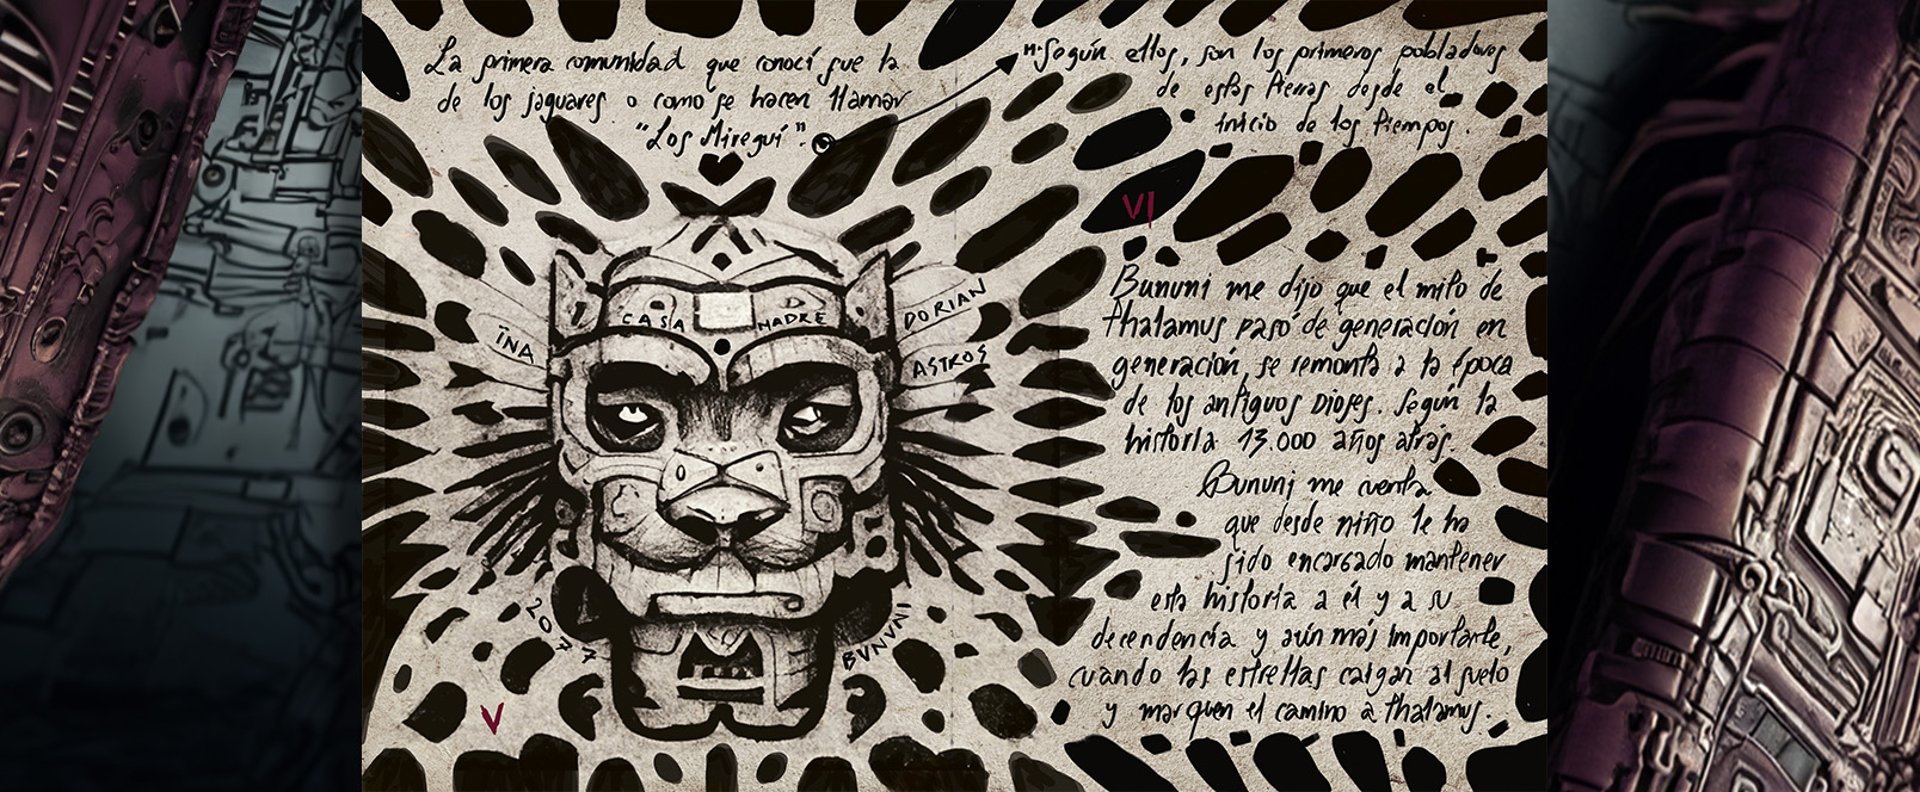 La primera comunidad que conocí fue la
de los jaguares o como se hacen llamar
"Los Mireguí".
Según ellos, son los primeros pobladores
de estas tierras desde el
inicio de los tiempos.
VI
ÏNA
CASA MADRE
DORIAN
ASTROS
2077
BUNUNI
V
Bununi me dijo que el mito de
thalamus pasó de generación en
generación, se remonta a la época
de los antiguos Dioses. Según la
historia 13.000 años atrás.
Bununi me cuenta
que desde niño le ha
sido encargado mantener
esta historia a él y a su
decendencia y aún más importante,
cuando las estrellas caigan al suelo
y marquen el camino a thalamus.